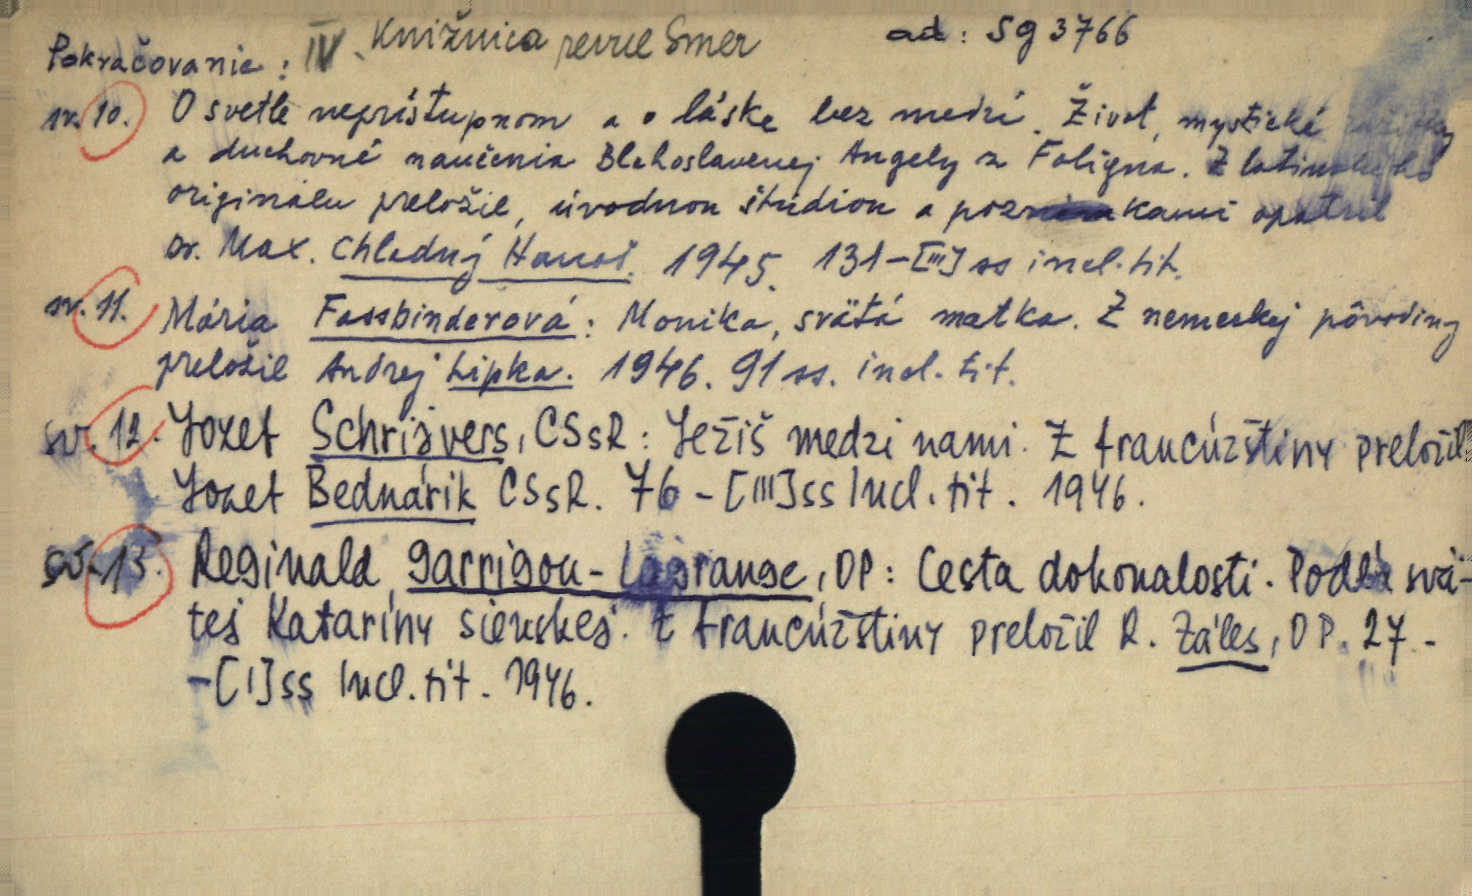 Pokračovanie: IV. Knižnica revue Smer ad: Sg 3766
sv. 10. O svetle neprístupnom a o láske bez medzí. Život, mystické
a duchovné naučenia Blahoslavenej Angely z Foligna. Z latinského
originálu preložil, úvodnou štúdiou a poznámkami opatril
Dr. Max. Chladný Hanoš. 1945. 131-[III] ss incl. tit.
sv. 11. Mária Fassbinderová: Monika, svätá matka. Z nemeckej pôvodiny
preložil Andrej Lipka. 1946. 91 ss. incl. tit.
sv. 12. Jozef Schrijvers, CSsR: Ježiš medzi nami. Z francúzštiny preložil
Jozef Bednárik CSsR. 76-[III] ss Incl. tit. 1946.
sv. 13. Reginald Garrigou-Lagrange, OP: Cesta dokonalosti. Podľa svä-
tej Kataríny sienskej. Z francúzštiny preložil R. Záleš, OP. 27-
-[I] ss Incl. tit. 1946.